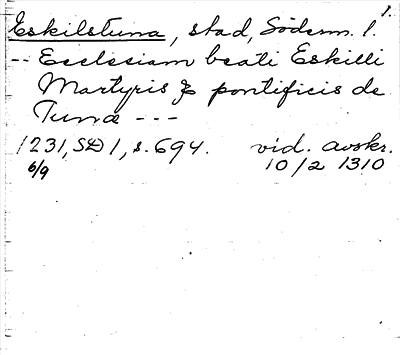 1.
Eskilstuna, stad, Söderm. l.
-- Ecclesiam beati Eskilli
Martyris & pontificis de
Tuna ---
1231, SD 1, s. 694. vid. avskr.
6/9 10/2 1310